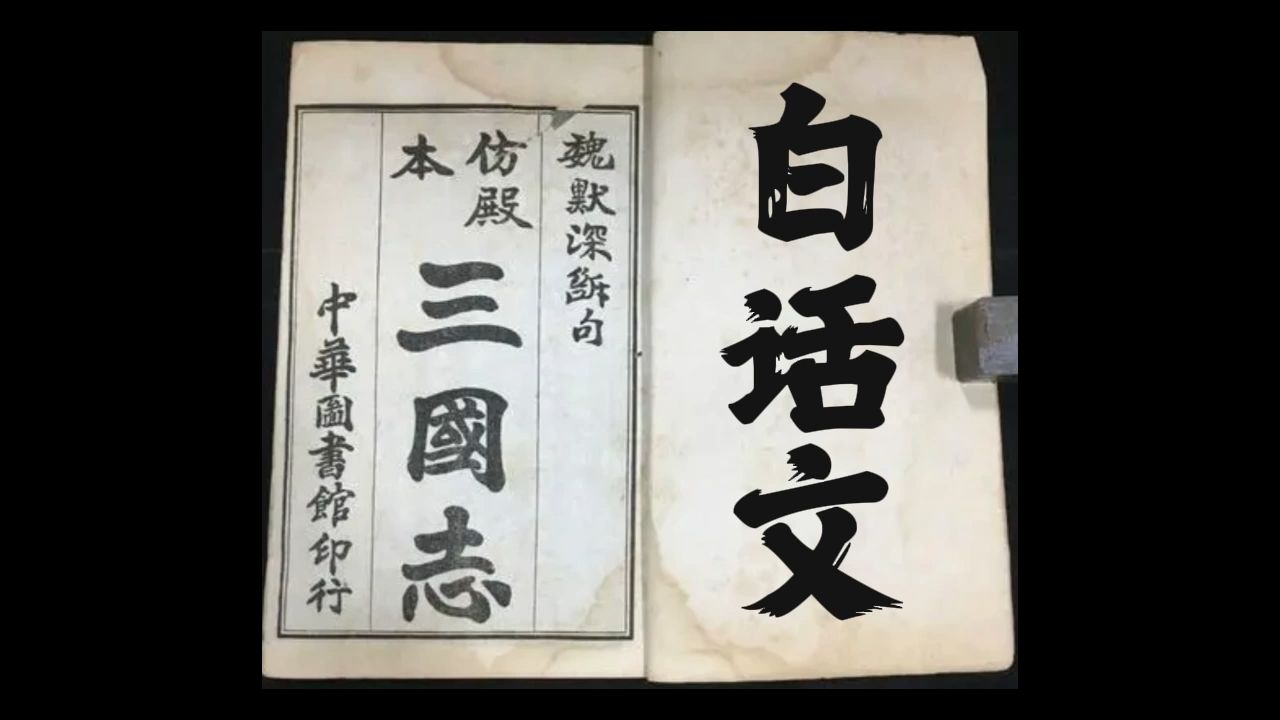 白话文
魏默深斷句
仿殿
本
三國志
中華圖書館印行